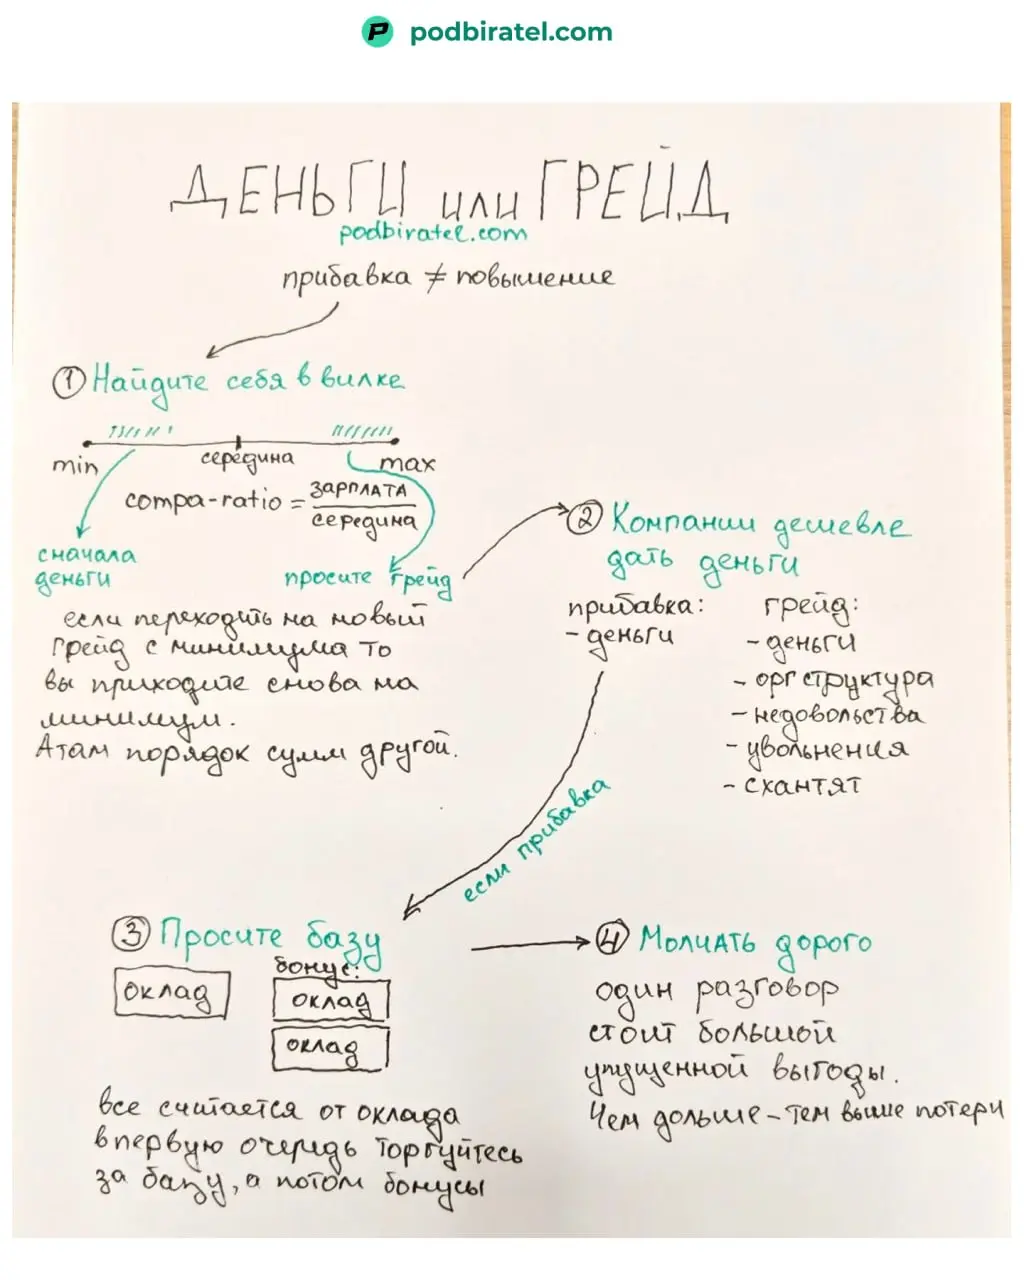 podbiratel.com
ДЕНЬГИ или ГРЕЙД
podbiratel.com
прибавка ≠ повышение
1 Найдите себя в вилке
min середина max
compa-ratio = зарплата
середина
сначала
деньги
просите грейд
если переходить на новый
грейд с минимума то
вы приходите снова на
минимум.
А там порядок сумм другой.
2 Компании дешевле
дать деньги
прибавка:
- деньги
грейд:
- деньги
- оргструктура
- недовольства
- увольнения
- схантят
если прибавка
3 Просите базу
оклад
бонус:
оклад
оклад
все считается от оклада
в первую очередь торгуйтесь
за базу, а потом бонусы
4 Молчать дорого
один разговор
стоит большой
упущенной выгоды.
Чем дольше - тем выше потери